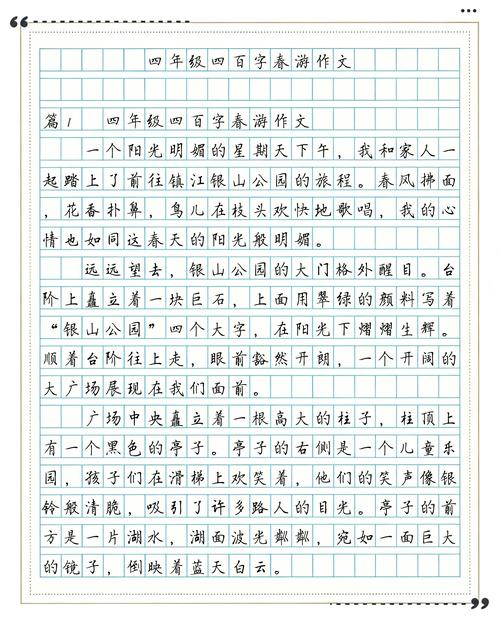 四年级四百字春游作文
篇1 四年级四百字春游作文
一个阳光明媚的星期天下午，我和家人一
起踏上了前往镇江银山公园的旅程。春风拂面
，花香扑鼻，鸟儿在枝头欢快地歌唱，我的心
情也如同这春天的阳光般明媚。
远远望去，银山公园的大门格外醒目。台
阶上矗立着一块巨石，上面用翠绿的颜料写着
“银山公园”四个大字，在阳光下熠熠生辉。
顺着台阶往上走，眼前豁然开朗，一个开阔的
大广场展现在我们面前。
广场中央矗立着一根高大的柱子，柱顶上
有一个黑色的亭子。亭子的右侧是一个儿童乐
园，孩子们在滑梯上欢笑着，他们的笑声像银
铃般清脆，吸引了许多路人的目光。亭子的前
方是一片湖水，湖面波光粼粼，宛如一面巨大
的镜子，倒映着蓝天白云。